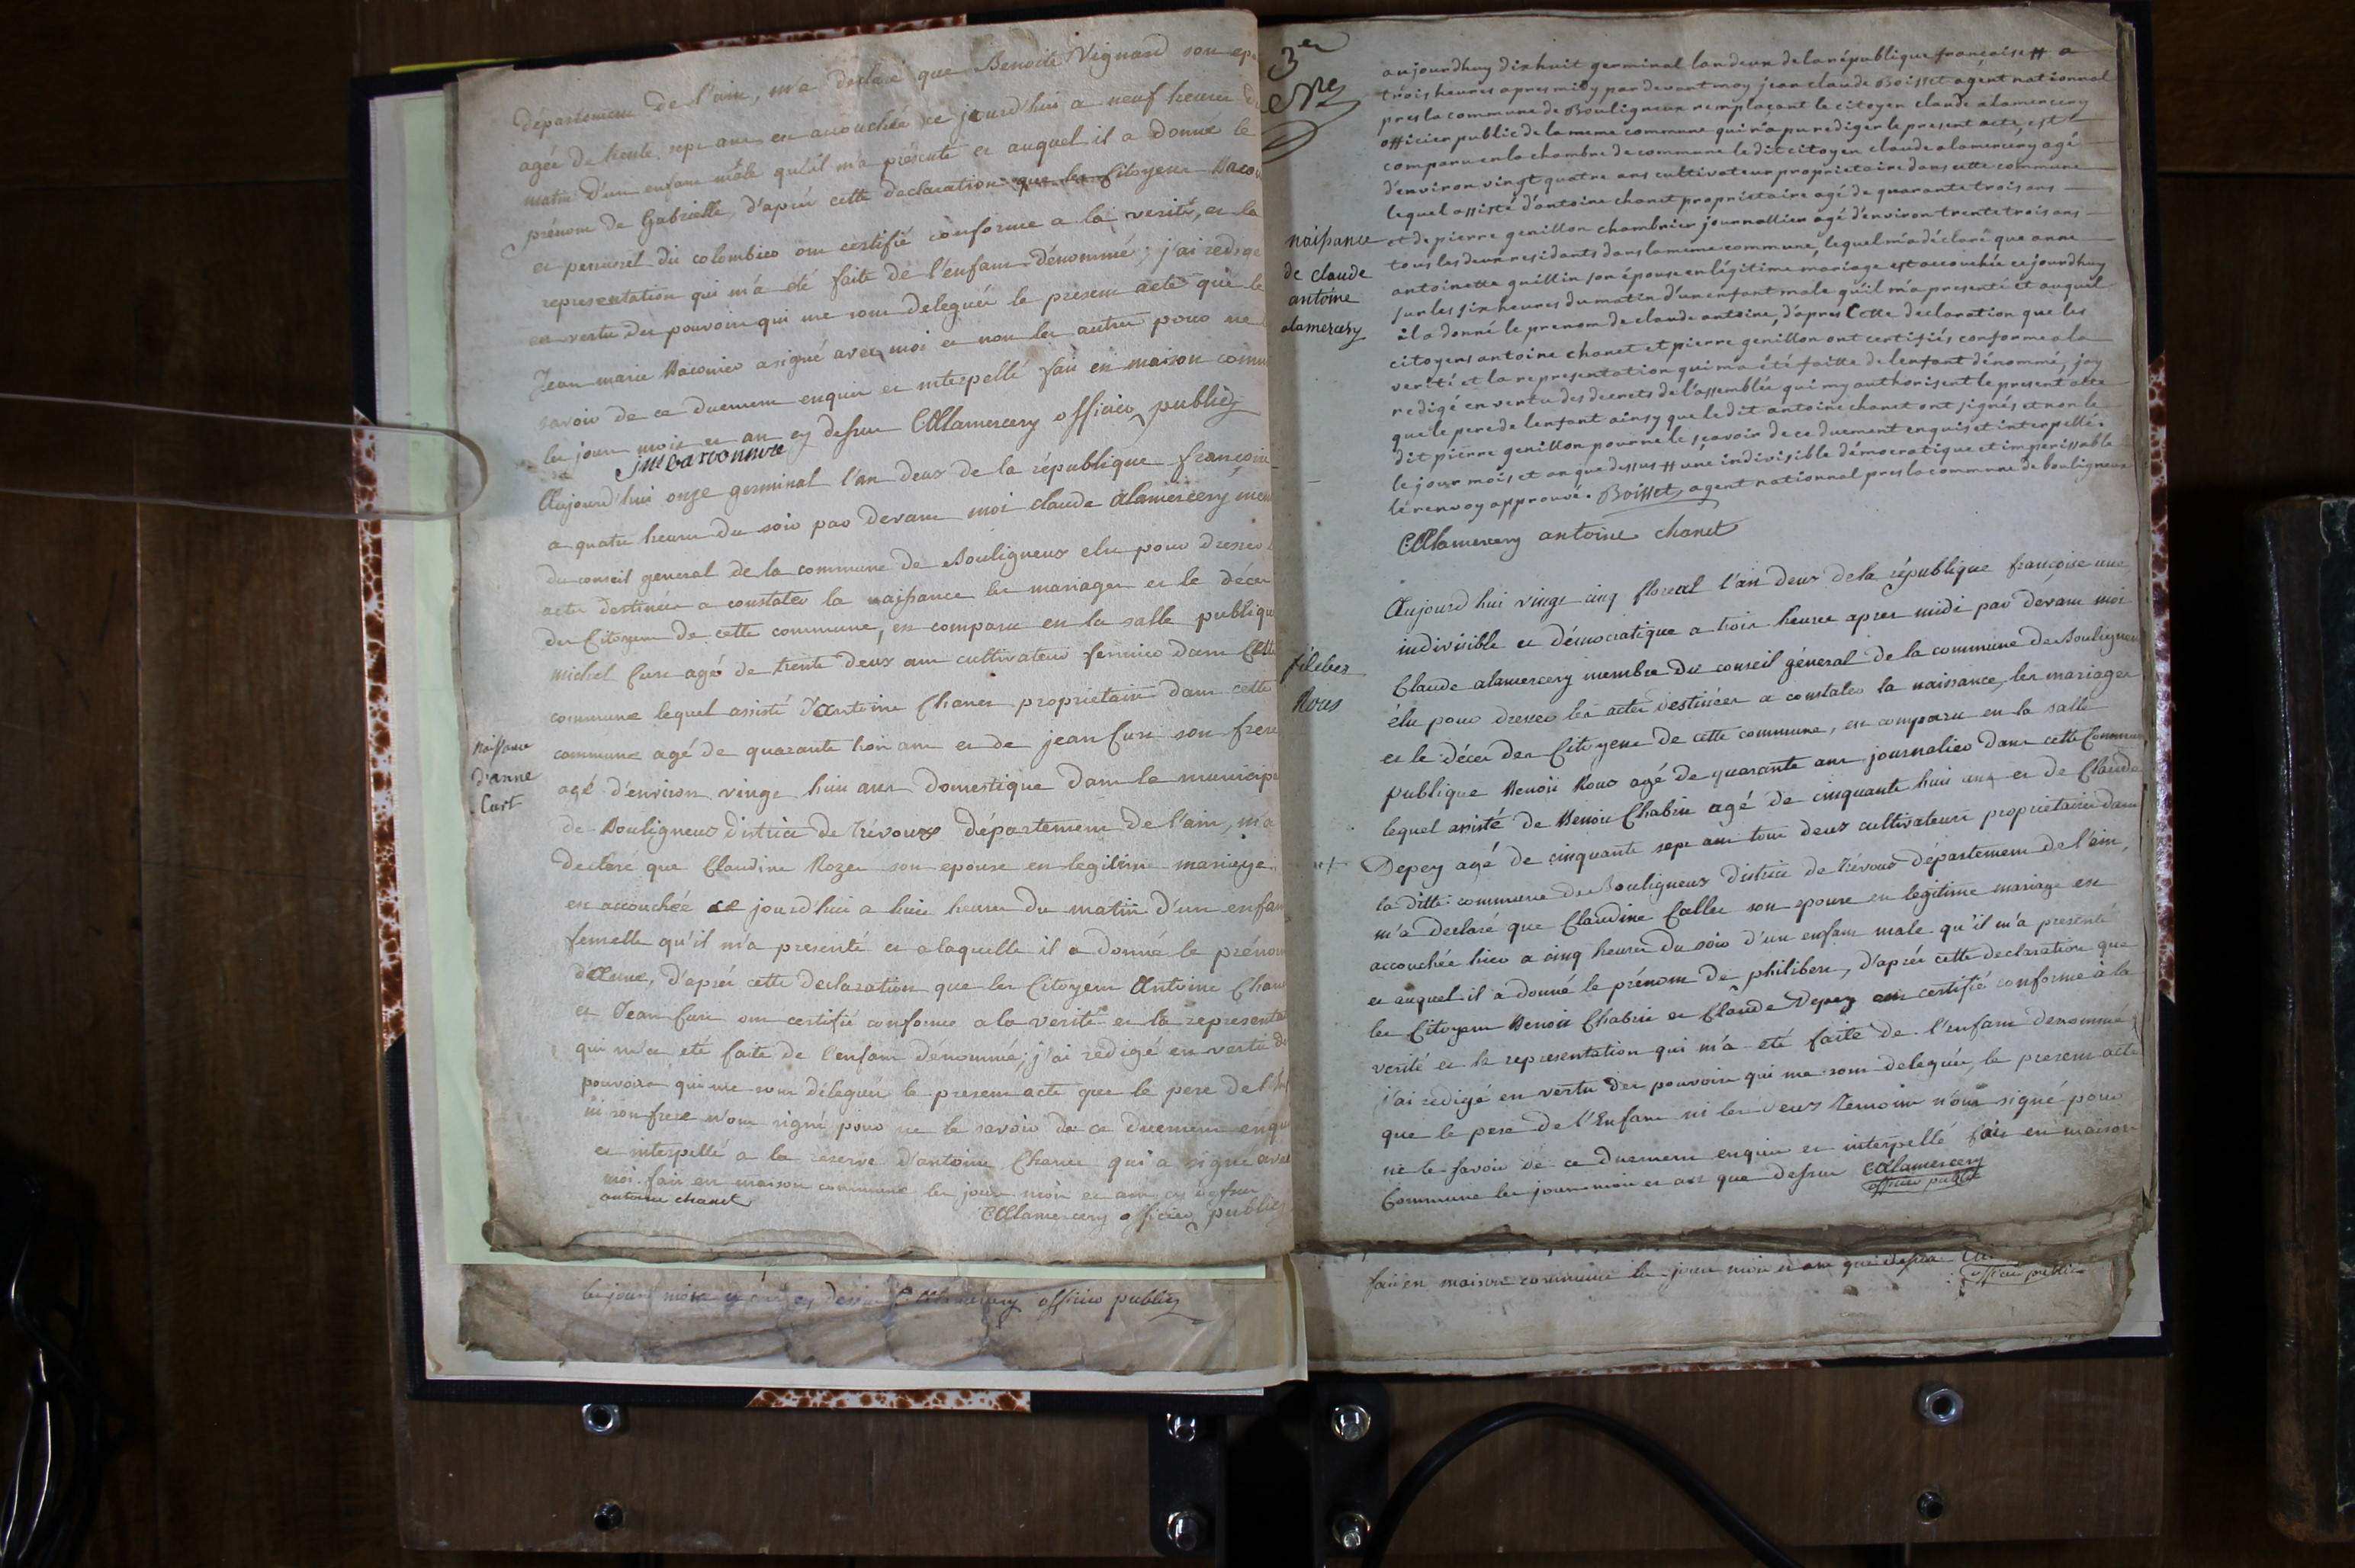 département de l'ain, m'a declaré que Benoite Vignard son ep
agée de trente sept ans est accouchée ce jourd'hui a neuf heures d
matin d'un enfant mâle qu'il m'a présenté et auquel il a donné le
prénom de Gabrielle, d'aprés cette declaration que les Citoyens Bacon
et perussel du colombier ont certifié conforme a la verité, et la
representation qui m'a été faite de l'enfant dénommé; j'ai rédigé
en vertu des pouvoirs qui me sont delegués le present acte que le
Jean marie Baconier a signé avec moi et non les autres pour ne
savoir de ce duement enquis et interpellé fait en maison comm
les jour mois et an cy dessus CAlamercery officier public
jm Baconnier
Aujourd'hui onze germinal l'an deux de la république françoise
a quatre heures du soir par devant moi claude alamercery mem
du conseil general de la commune de Bouligneux elu pour dresser l
actes destinées a constater la naissance les mariages et le décès
des Citoyens de cette commune, est comparu en la salle publique
michel Curt agé de trente deux ans cultivateur fermier dans Cette
commune lequel assisté d'Antoine Chanet propriétaire dans cette
Naissance
d'anne
Curt
commune agé de quarante trois ans et de jean Curt son frere
agé d'environ vingt huit ans domestique dans la municip
de Bouligneux district de Trévoux département de l'ain, m'a
declaré que Claudine Rozer son epouse en legitime mariage
est accouchée ce jourd'hui a huit heures du matin d'un enfan
femelle qu'il m'a presenté et a laquelle il a donné le prénom
d'Anne, d'aprés cette declaration que les Citoyens Antoine Chan
et Jean Curt ont certifié conforme a la verité et la representa
qui m'a eté faite de l'enfant dénommé; j'ai rédigé en vertu de
pouvoirs qui me sont délegués le present acte que le pere de l'Enf
ni son frere n'ont signé pour ne le savoir de ce duement enqui
et interpellé a la reserve d'antoine Chanet qui a signé avec
moi fait en maison commune les jour mois et an cy dessus
antoine chanet
CAlamercery officier public
les jour mois et an cy dessus CAlamercery officier public
3e
aujourdhuy dixhuit germinal lan deux de la république françoise # a
trois heures apres midy par devant moy jean claude Boisset agent nationnal
pres la commune de Bouligneux remplaçant le citoyen claude alamercery
officier public de la meme commune qui n'a pu rediger le present acte, est
comparu en la chambre de commune le dit citoyen claude alamercery agé
d'environ vingt quatre ans cultivateur proprietaire dans cette commune
lequel assisté d'antoine chanet proprietaire agé de quarante trois ans
naissance
de claude
antoine
alamercery
et de pierre genillon chambrier journallier agé d'environ trente trois ans
tous les deux residants dans la meme commune, lequel m'a déclaré que anne
antoinette guillin son épouse en légitime mariage est accouchée cejourdhuy
sur les six heures du matin d'un enfant male qu'il m'a presenté et auquel
il a donné le prenom de claude antoine, d'apres Cette declaration que les
citoyens antoine chanet et pierre genillon ont certifiés conforme a la
verité et la representation qui m'a été faitte de lenfant dénommé, jay
redigé en vertu des decrets de l'assemblée qui my authorisent le present acte
que le pere de lenfant ainsy que le dit antoine chanet ont signés et non le
dit pierre genillon pour ne le sçavoir de ce duement enquis et interpellé.
le jour mois et an que dessus # une indivisible démocratique et impérissable
le renvoy approuvé. Boisset agent nationnal pres la commune de bouligneux
CAlamercery antoine chanet
Aujourd'hui vingt cinq floreal l'an deux de la république françoise une
indivisible et démocratique a trois heures apres midi par devant moi
filiber
Roux
Claude alamercery membre du conseil géneral de la commune de Bouligneux
élu pour dresser les actes destinées a constater la naissance, les mariages
et le décès des Citoyens de cette commune, est comparu en la salle
publique Benoit Roux agé de quarante ans journalier dans cette Commune
lequel assisté de Benoit Chabrin agé de cinquante huit ans et de Claude
Depey agé de cinquante sept ans tous deux cultivateurs proprietaires dans
la ditte commune de Bouligneux district de Trévoux département de l'ain,
m'a declaré que Claudine Callet son epouse en legitime mariage est
accouchée hier a cinq heures du soir d'un enfant male qu'il m'a presenté
et auquel il a donné le prénom de philibert, d'aprés cette declaration que
les Citoyens Benoit Chabrin et Claude Depey ont certifié conforme à la
verité et la representation qui m'a eté faite de l'enfant denommé,
j'ai redigé en vertu des pouvoirs qui me sont delegués, le present acte
que le pere de l'Enfant ni les deux temoins n'ont signé pour
ne le savoir de ce duement enquis et interpellé fait en maison
Commune les jour mois et an que dessus CAlamercery
officier public
fait en maison commune les jour mois et an que dessus
officier public